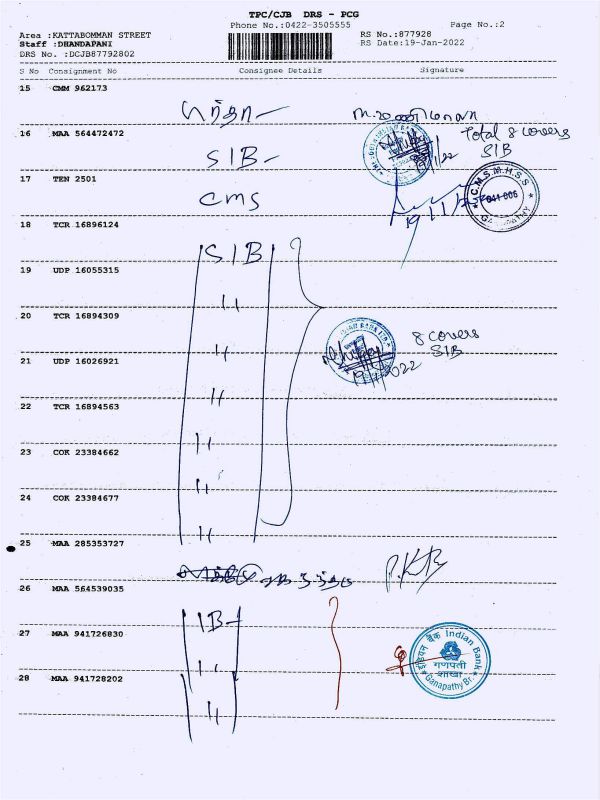 TPC/CJB DRS - PCG
Phone No.:0422-3505555 Page No.:2
Area :KATTABOMMAN STREET RS No.:877928
Staff :DHANDAPANI RS Date:19-Jan-2022
DRS No. :DCJB87792802
S No Consignment No Consignee Details Signature
15 CMM 962173
16 MAA 564472472
Total 8 covers
SIB
SIB
17 TEN 2501
CMS
C.M.S.M.H.S.S
641 006
GANAPATHY
19/1/22
18 TCR 16896124
SIB
19 UDP 16055315
"
20 TCR 16894309
INDIAN BANK LTD
8 covers
SIB
"
19/1/2022
21 UDP 16026921
"
22 TCR 16894563
"
23 COK 23384662
"
24 COK 23384677
"
25 MAA 285353727
P.KB
26 MAA 564539035
IB
27 MAA 941726830
"
इंडियन बैंक Indian Bank
गणपती
शाखा
Ganapathy Br.
28 MAA 941728202
"